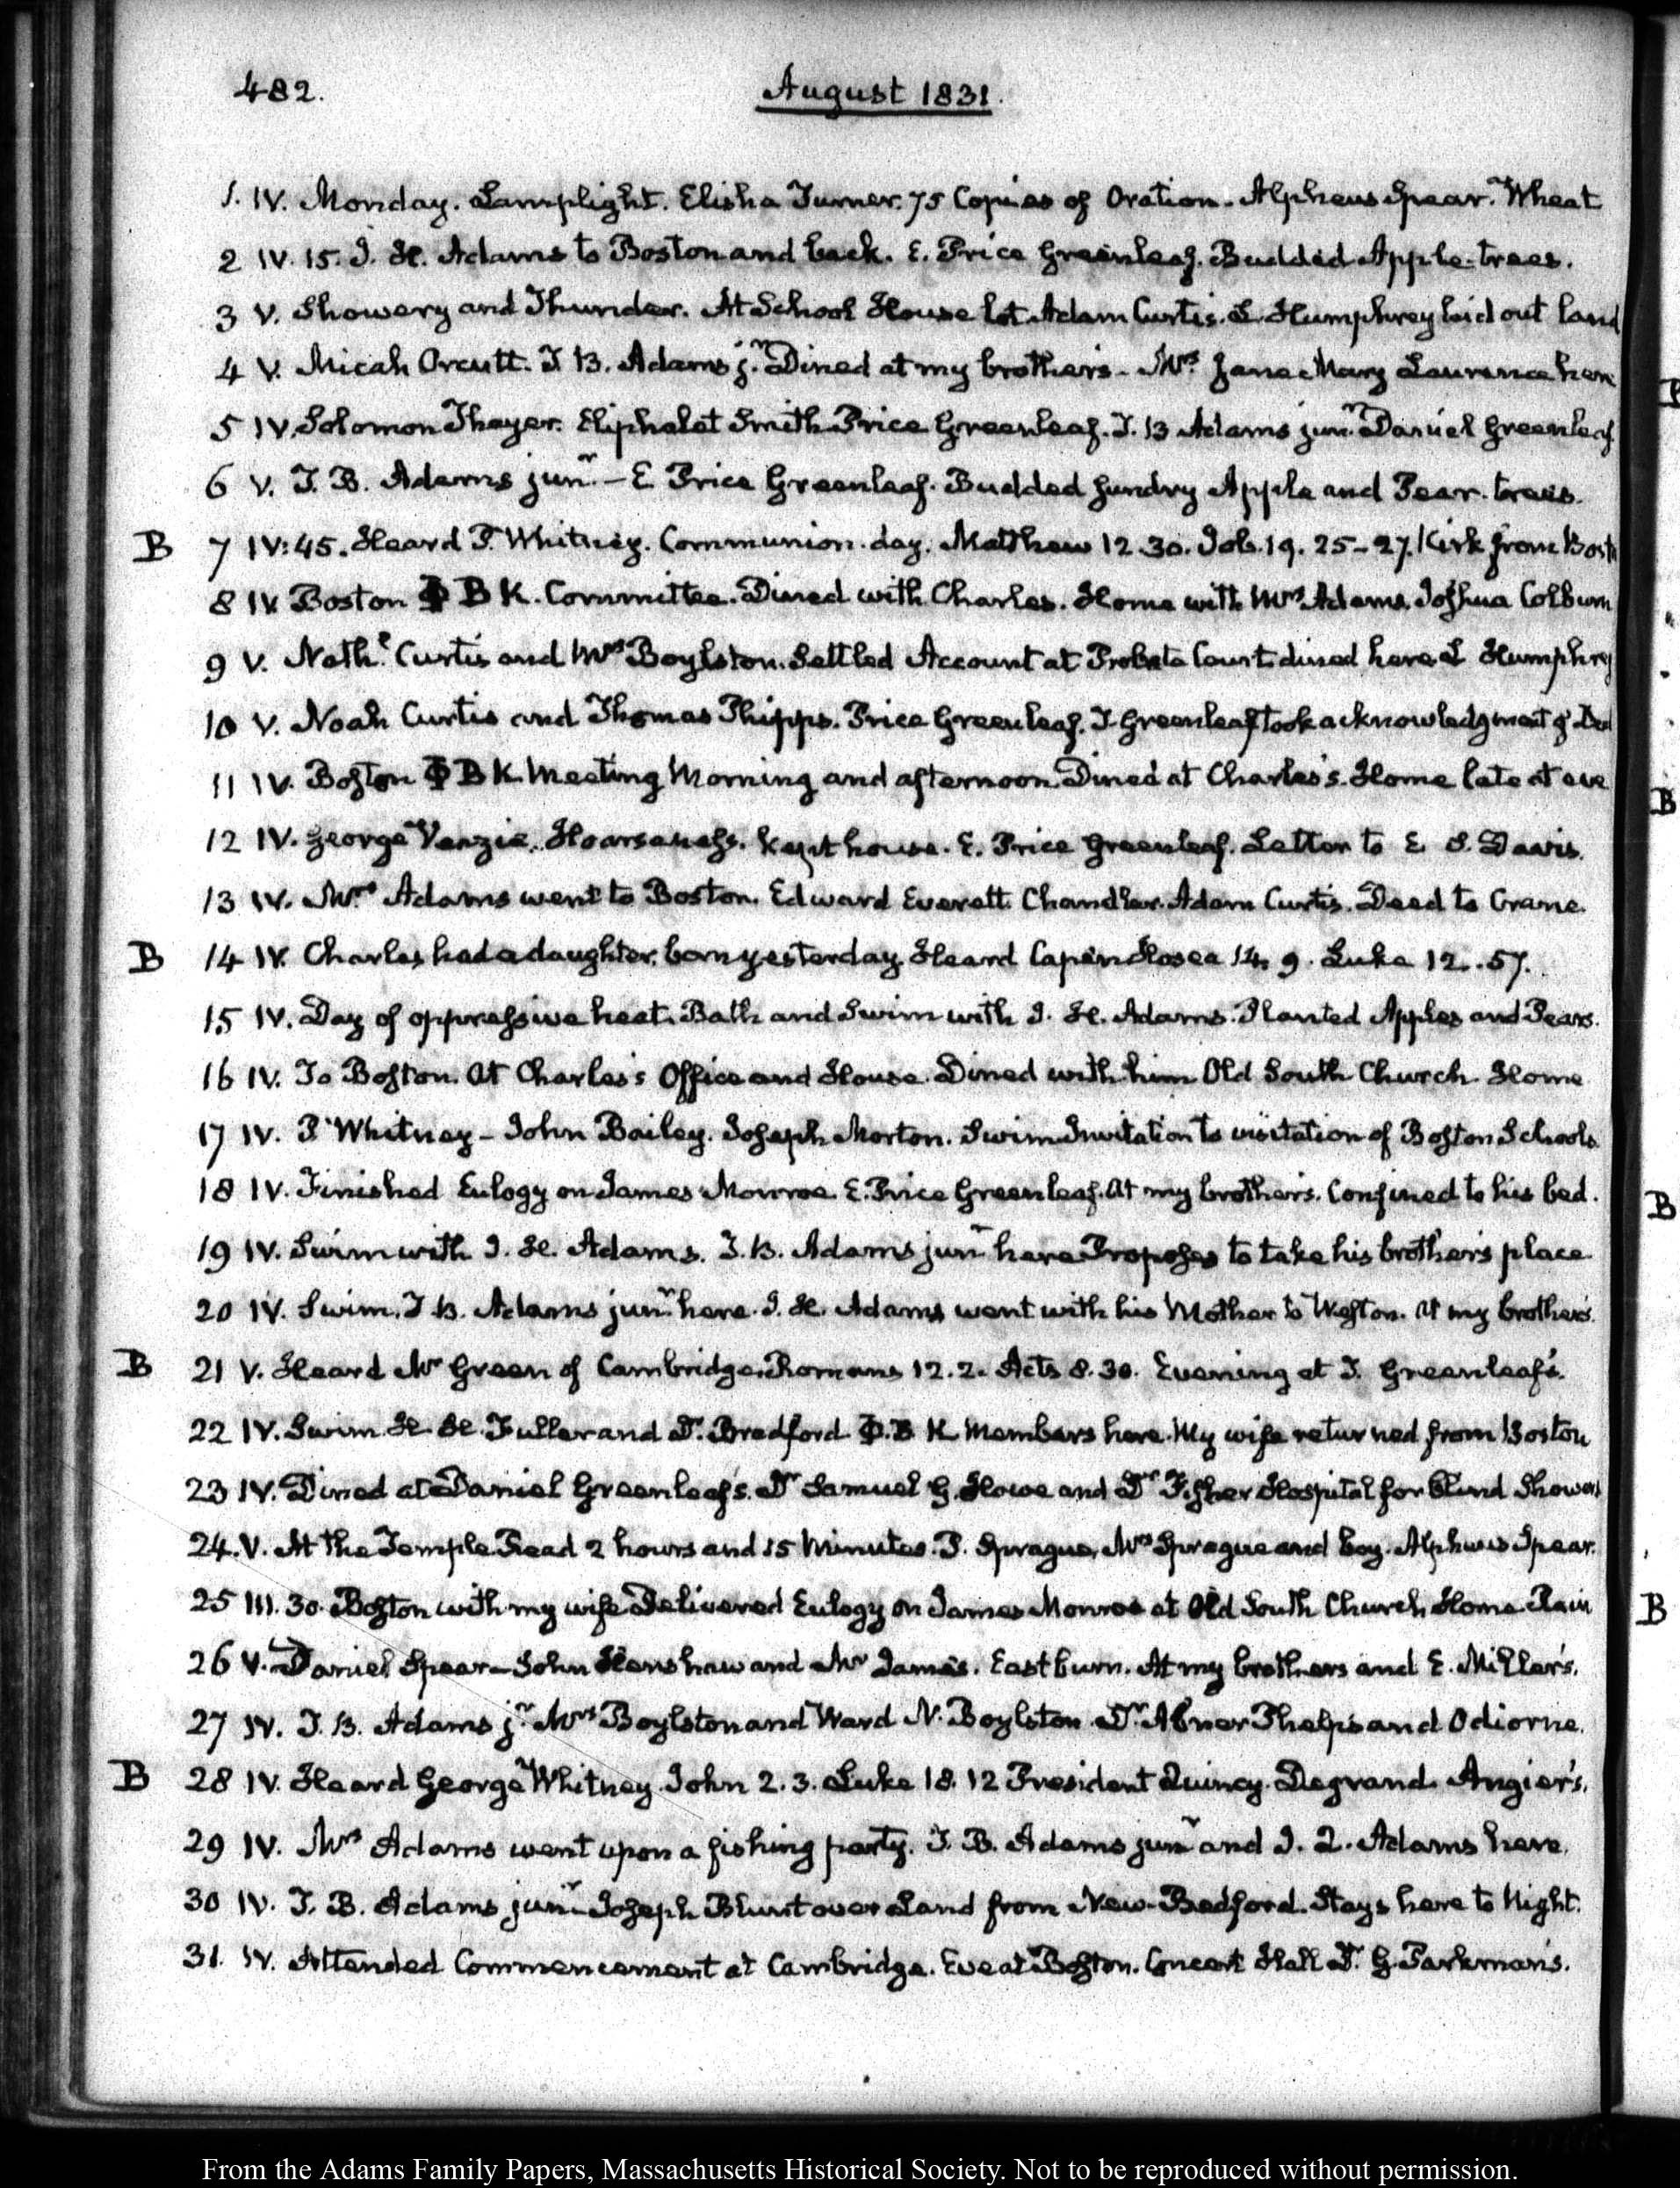 482.
August 1831.
1. IV. Monday. Lamplight. Elisha Turner. 75 Copies of Oration. Alpheus Spear. Wheat
2 IV. 15. I. H. Adams to Boston and back. E. Price Greenleaf. Budded Apple-trees.
3 V. Showery and Thunder. At School House lot. Adam Curtis. L. Humphrey laid out land
4 V. Micah Orcutt. T. B. Adams jr. Dined at my brother's – Mrs Jane Mary Laurence here
5 IV. Solomon Thayer. Eliphalet Smith Price Greenleaf. T. B Adams junr. Daniel Greenleaf
6 V. T. B. Adams junr. – E. Price Greenleaf. Budded sundry Apple and Pear-trees.
B 7 IV: 45. Heard P. Whitney. Communion day. Matthew 12 30. Job. 19. 25–27. Kirk from Bost
8 IV. Boston Φ B K. Committee. Dined with Charles. Home with Mrs Adams. Joshua Colburn
9 V. Nathl. Curtis and Mrs Boylston. Settled Account at Probate Court dined here. L Humphrey
10 V. Noah Curtis and Thomas Phipps. Price Greenleaf. T. Greenleaf took acknowledgment of Deed
11 IV. Boston Φ B K. Meeting Morning and afternoon. Dined at Charles's. Home late at eve
12 IV. George Veazie. Hoarseness. kept house. E. Price Greenleaf. Letter to E. S. Davis.
13 IV. Mrs Adams went to Boston. Edward Everett. Chandler. Adam Curtis. Deed to Crane.
B 14 IV. Charles had a daughter born yesterday. Heard Capen Hosea 14. 9. Luke 12. 57.
15 IV. Day of oppressive heat. Bath and Swim with I. H. Adams. Planted Apples and Pears.
16 IV. To Boston. At Charles's Office and House. Dined with him Old South Church. Home
17 IV. P. Whitney – John Bailey. Joseph Morton. Swim Invitation to visitation of Boston Schools
18 IV. Finished Eulogy on James Monroe. E. Price Greenleaf. At my brother's. Confined to his bed.
19 IV. Swim with I. H. Adams. T. B. Adams junr here Proposes to take his brother's place
20 IV. Swim. T. B. Adams junr. here. I. H. Adams went with his Mother to Weston. At my brother's.
B 21 V. Heard Mr Green of Cambridge. Romans 12. 2. Acts 8. 30. Evening at T. Greenleaf's.
22 IV. Swim. H. H. Fuller and D. Bradford Φ. B K Members here. My wife returned from Boston
23 IV. Dined at Daniel Greenleaf's. Dr Samuel G. Howe and Dr Fisher Hospital for Blind Shower
24. V. At the Temple. Read 2 hours and 15 Minutes. P. Sprague, Mrs Sprague and boy. Alpheus Spear.
25 III. 30. Boston with my wife Delivered Eulogy on James Monroe at Old South Church Home. Rain
26 V. Daniel Spear – John Henshaw and Mr James. Eastburn. At my brothers and E. Miller's.
27 IV. T. B. Adams jr. Mrs Boylston and Ward N. Boylston. Dr. Abner Phelps and Odiorne.
B 28 IV. Heard George Whitney. John 2. 3. Luke 18. 12 President Quincy. Degrand. Angier's.
29 IV. Mrs Adams went upon a fishing party. T. B. Adams junr and J. Q. Adams here.
30 IV. T. B. Adams junr. Joseph Blunt over Land from New-Bedford. Stays here to Night.
31. IV. Attended Commencement at Cambridge. Eve at Boston. Concert Hall Dr. G. Parkman's.
From the Adams Family Papers, Massachusetts Historical Society. Not to be reproduced without permission.